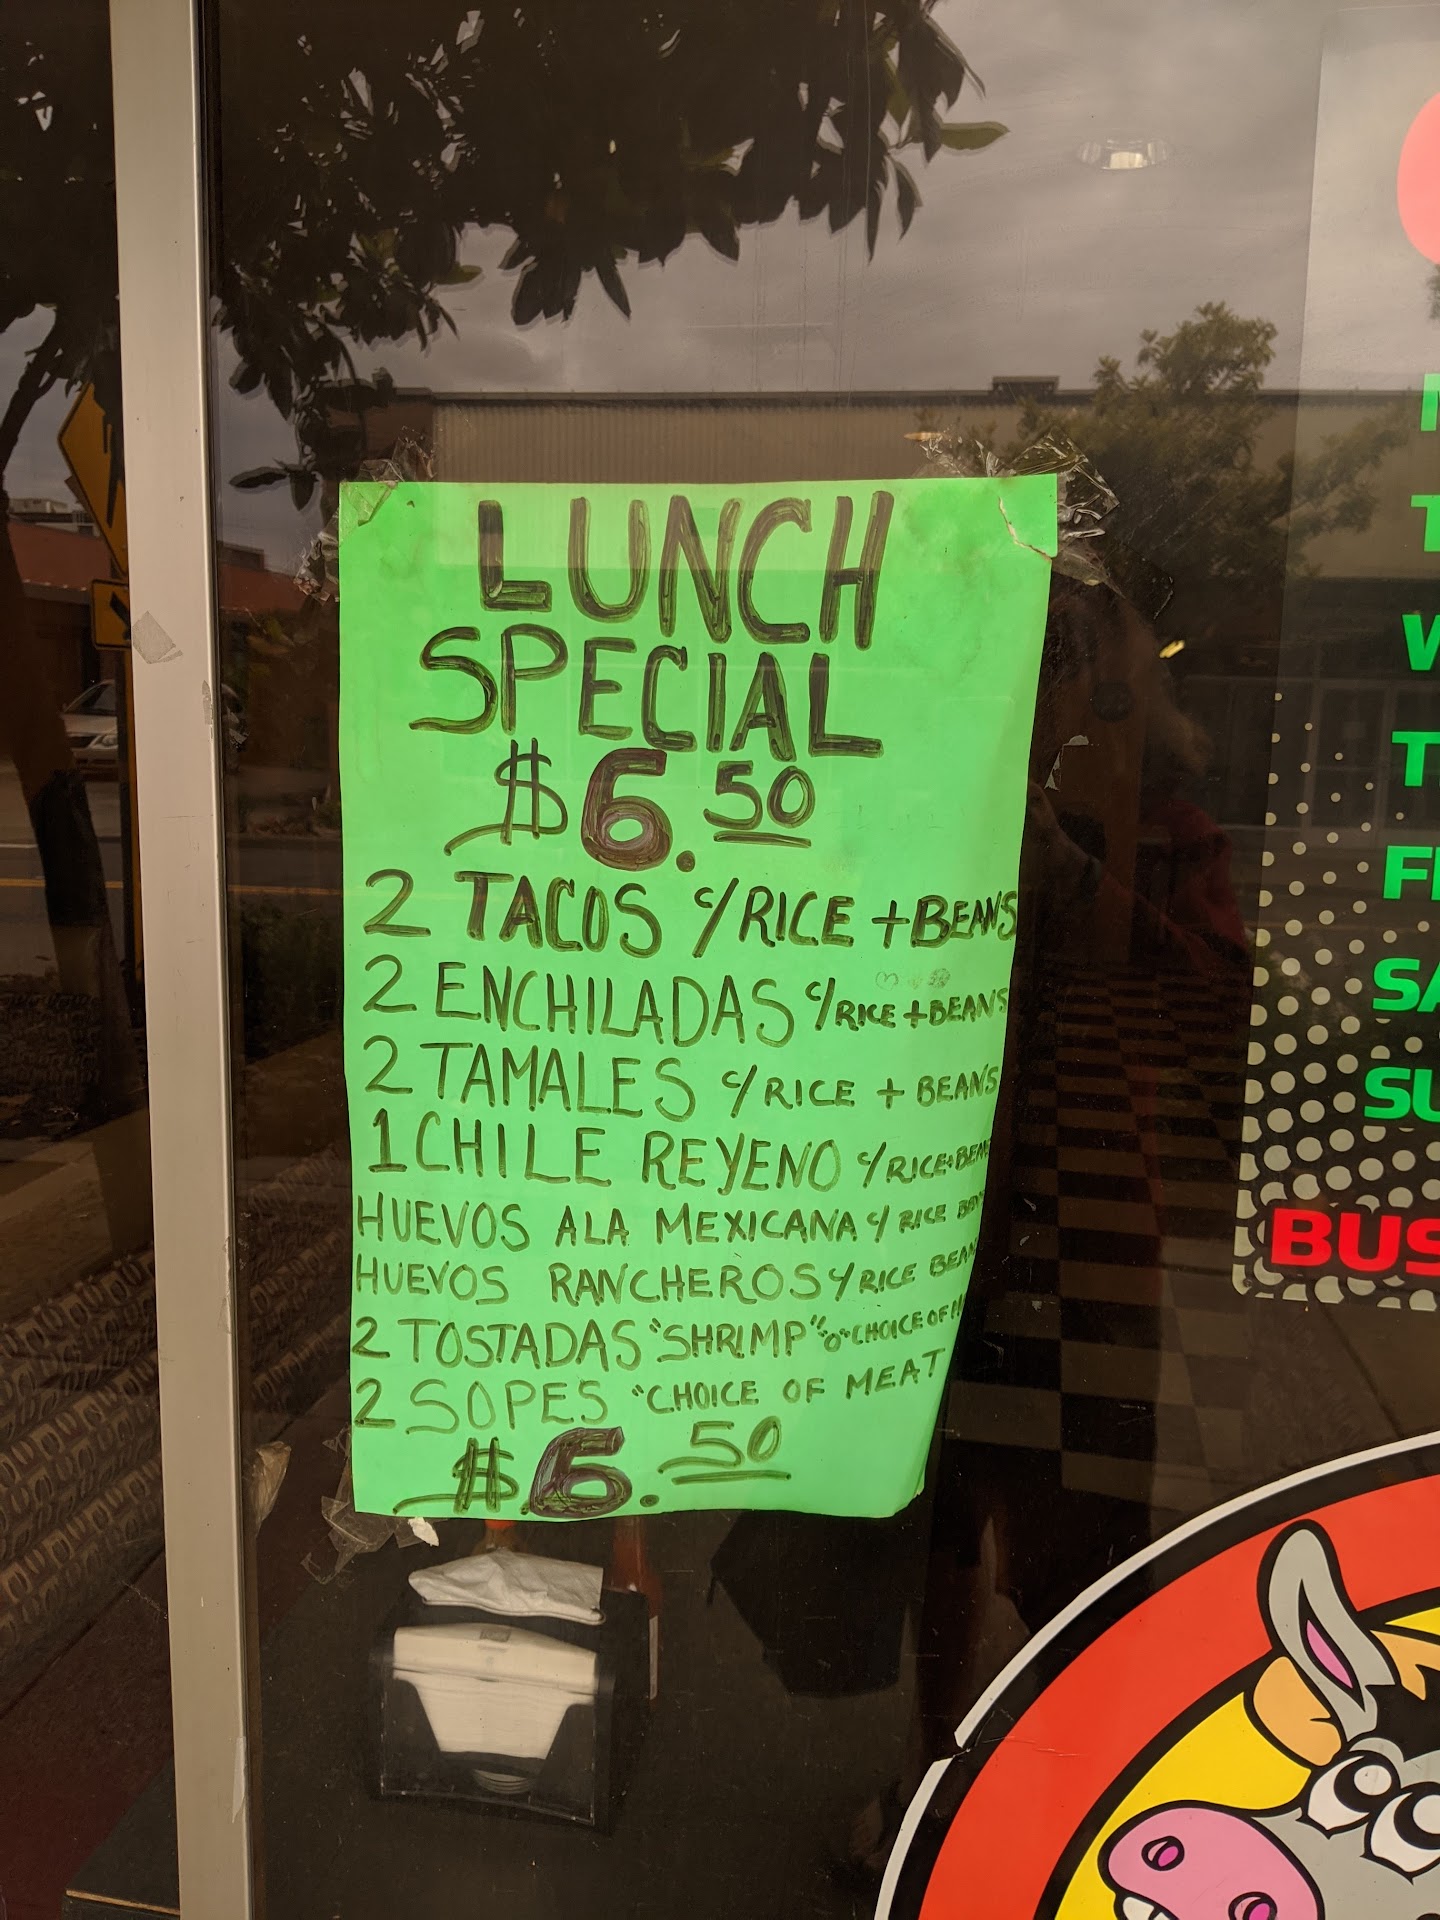 LUNCH
SPECIAL
$6.50
2 TACOS c/RICE + BEANS
2 ENCHILADAS c/RICE + BEANS
2 TAMALES c/RICE + BEANS
1 CHILE REYENO c/RICE + BEANS
HUEVOS ALA MEXICANA c/ RICE
HUEVOS RANCHEROS c/RICE BEAN
2 TOSTADAS "SHRIMP" "O" CHOICE OF!!
2 SOPES "CHOICE OF MEAT
$6.50
BUS